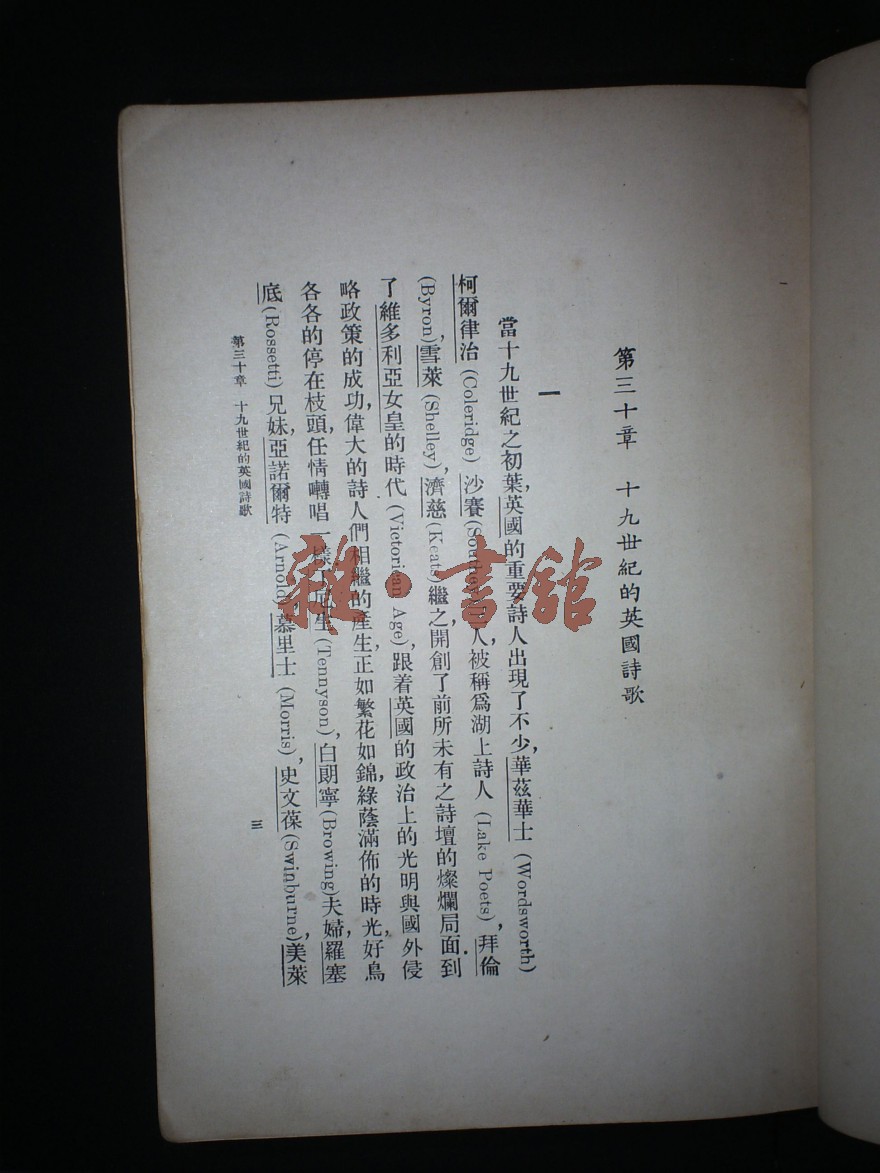 第三十章 十九世紀的英國詩歌
一
當十九世紀之初葉,英國的重要詩人出現了不少,華茲華士 (Wordsworth)
柯爾律治 (Coleridge) 沙賽 人被稱爲湖上詩人 (Lake Poets),拜倫
(Byron),雪萊 (Shelley),濟慈 (Keats) 繼之,開創了前所未有之詩壇的燦爛局面.到
了維多利亞女皇的時代 (Victorican Age),跟着英國的政治上的光明與國外侵
略政策的成功,偉大的詩人們相繼的產生,正如繁花如錦,綠蔭滿佈的時光,好鳥
各各的停在枝頭,任情囀唱一樣. 生 (Tennyson),白朗寧 (Browing) 夫婦,羅塞
底 (Rossetti) 兄妹,亞諾爾特 (Arnold),慕里士 (Morris),史文葆 (Swinburne),美萊
第三十章 十九世紀的英國詩歌
三
雜·書館